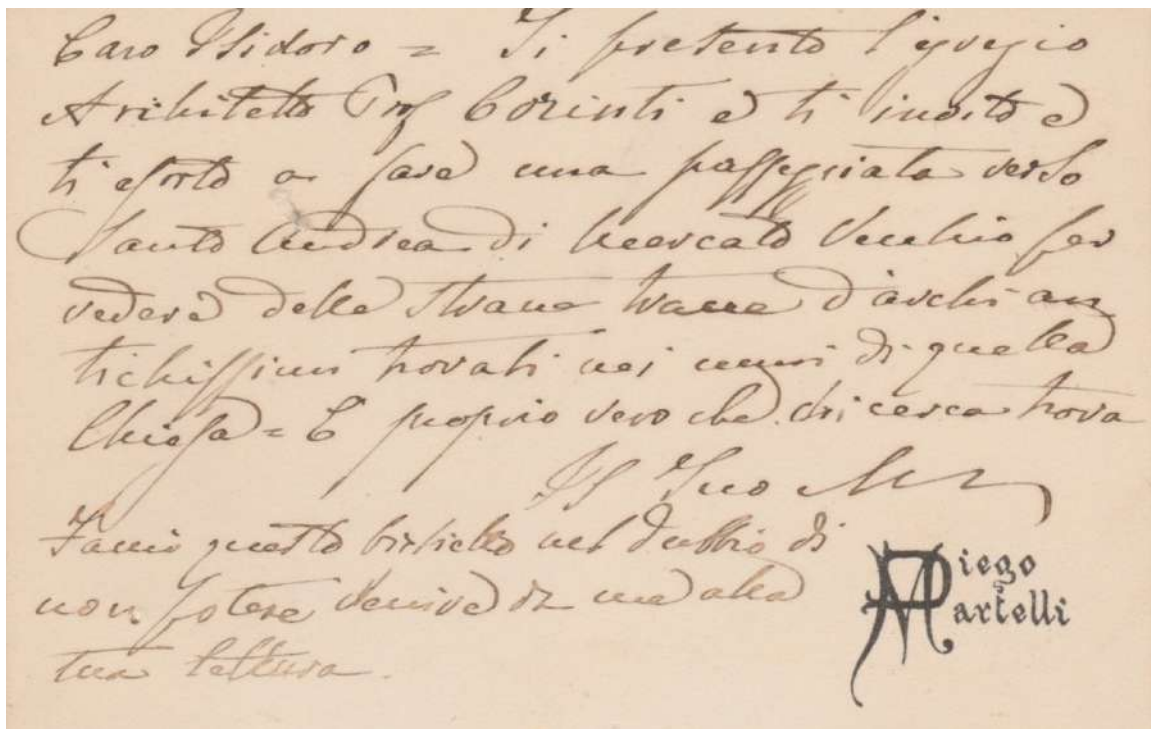 Caro Isidoro = Ti presento l'egregio
Architetto Prof Corinti e ti invito e
ti esorto a fare una passeggiata verso
Santo Andrea di Mercato Vecchio per
vedere delle strane tracce d'archi an
tichissimi trovati nei muri di quella
Chiesa = E proprio vero che chi cerca trova
Il Tuo
Faccio questo biglietto nel dubbio di
non potere venire da me alla
tua lettura.
Diego
Martelli